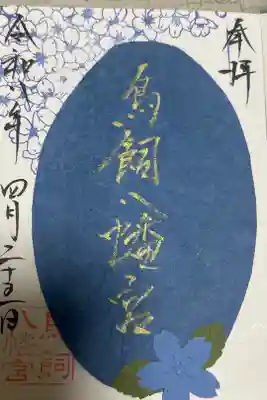 奉拝
鳥飼八幡宮
令和八年 四月二十三日
鳥飼
八幡宮